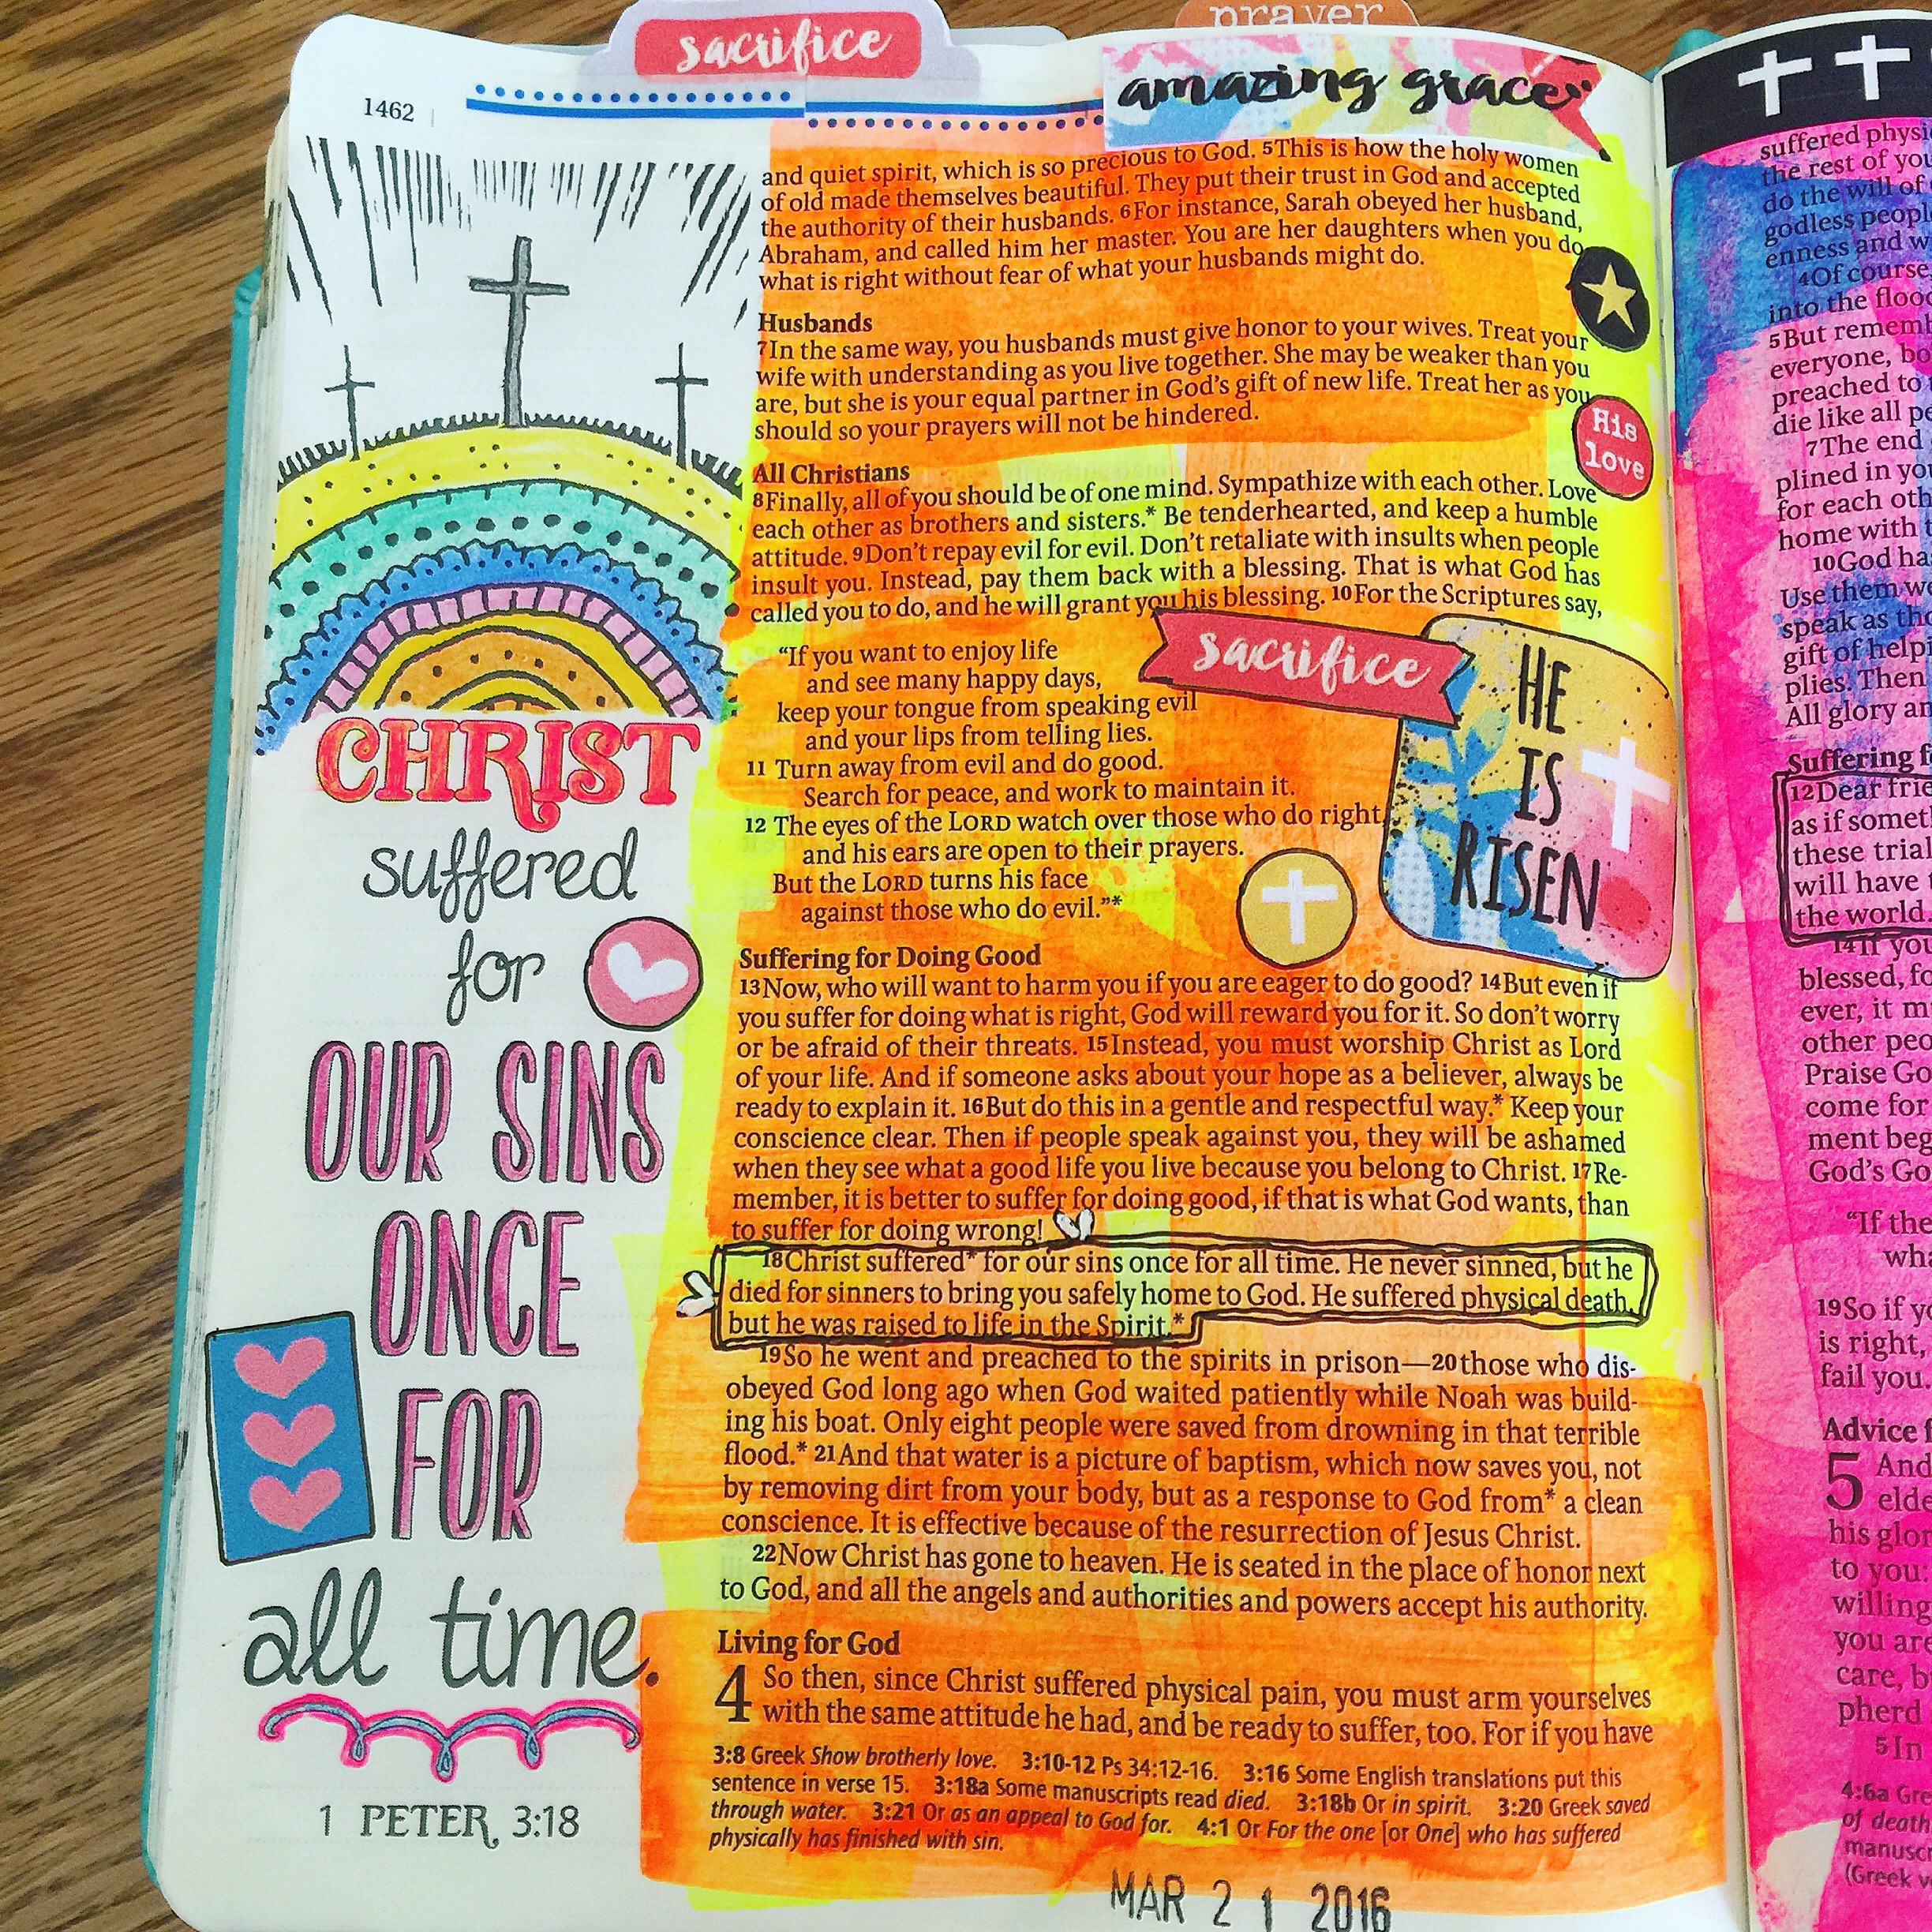 sacrifice
prayer
1462
amazing grace
and quiet spirit, which is so precious to God. 5This is how the holy women
of old made themselves beautiful. They put their trust in God and accepted
the authority of their husbands. 6For instance, Sarah obeyed her husband,
Abraham, and called him her master. You are her daughters when you do
what is right without fear of what your husbands might do.
Husbands
7In the same way, you husbands must give honor to your wives. Treat your
wife with understanding as you live together. She may be weaker than you
are, but she is your equal partner in God's gift of new life. Treat her as you
should so your prayers will not be hindered.
His
love
All Christians
8Finally, all of you should be of one mind. Sympathize with each other. Love
each other as brothers and sisters.* Be tenderhearted, and keep a humble
attitude. 9Don't repay evil for evil. Don't retaliate with insults when people
insult you. Instead, pay them back with a blessing. That is what God has
called you to do, and he will grant you his blessing. 10For the Scriptures say,
"If you want to enjoy life
and see many happy days,
keep your tongue from speaking evil
and your lips from telling lies.
11 Turn away from evil and do good.
Search for peace, and work to maintain it.
12 The eyes of the LORD watch over those who do right,
and his ears are open to their prayers.
But the LORD turns his face
against those who do evil."*
sacrifice
HE
IS
RISEN
Suffering for Doing Good
13Now, who will want to harm you if you are eager to do good? 14But even if
you suffer for doing what is right, God will reward you for it. So don't worry
or be afraid of their threats. 15Instead, you must worship Christ as Lord
of your life. And if someone asks about your hope as a believer, always be
ready to explain it. 16But do this in a gentle and respectful way.* Keep your
conscience clear. Then if people speak against you, they will be ashamed
when they see what a good life you live because you belong to Christ. 17Re-
member, it is better to suffer for doing good, if that is what God wants, than
to suffer for doing wrong!
18Christ suffered* for our sins once for all time. He never sinned, but he
died for sinners to bring you safely home to God. He suffered physical death,
but he was raised to life in the Spirit.*
19So he went and preached to the spirits in prison—20those who dis-
obeyed God long ago when God waited patiently while Noah was build-
ing his boat. Only eight people were saved from drowning in that terrible
flood.* 21And that water is a picture of baptism, which now saves you, not
by removing dirt from your body, but as a response to God from* a clean
conscience. It is effective because of the resurrection of Jesus Christ.
22Now Christ has gone to heaven. He is seated in the place of honor next
to God, and all the angels and authorities and powers accept his authority.
Living for God
4 So then, since Christ suffered physical pain, you must arm yourselves
with the same attitude he had, and be ready to suffer, too. For if you have
3:8 Greek Show brotherly love. 3:10-12 Ps 34:12-16. 3:16 Some English translations put this
sentence in verse 15. 3:18a Some manuscripts read died. 3:18b Or in spirit. 3:20 Greek saved
through water. 3:21 Or as an appeal to God for. 4:1 Or For the one [or One] who has suffered
physically has finished with sin.
MAR 21 2016
CHRIST
suffered
for
OUR SINS
ONCE
FOR
all time.
1 PETER 3:18
suffered
the rest of
do the will of
godless
and
4Of course,
into the
5But
everyone,
preached to
die like all
7The end
in
for each
home with
10God
Use them
speak as
gift of
Then
All glory
Suffering
12Dear
as if
these
will have
the world.
14If you
blessed,
ever, it
other
Praise
come for
God's
"If
19So if
is right,
fail you.
Advice
5 And
his
to you:
willing
you
care,
5In
4:6a
of death
(Greek